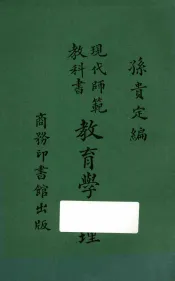 孫貴定編
現代師範
教科書
教育學
商務印書館出版